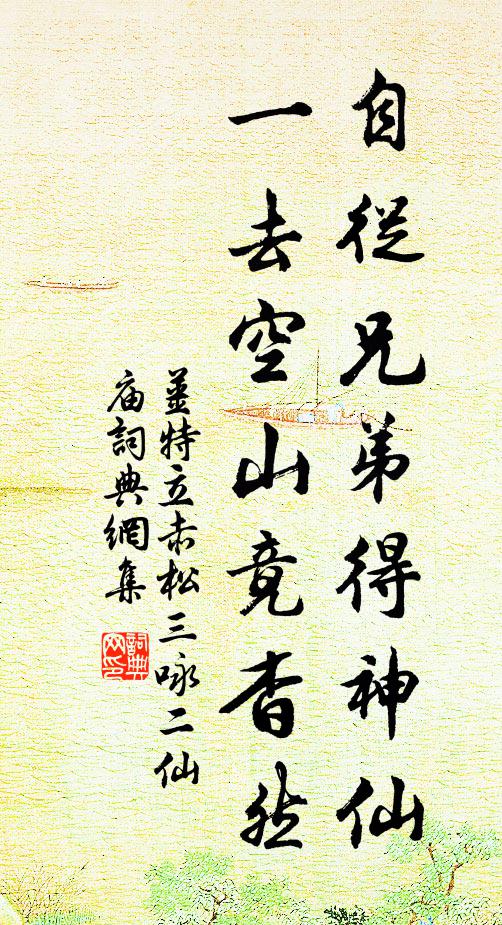 自從兄弟得神仙
一去空山竟杳然
薑特立赤松三咏二仙
庙詞典網集
詞典
网印